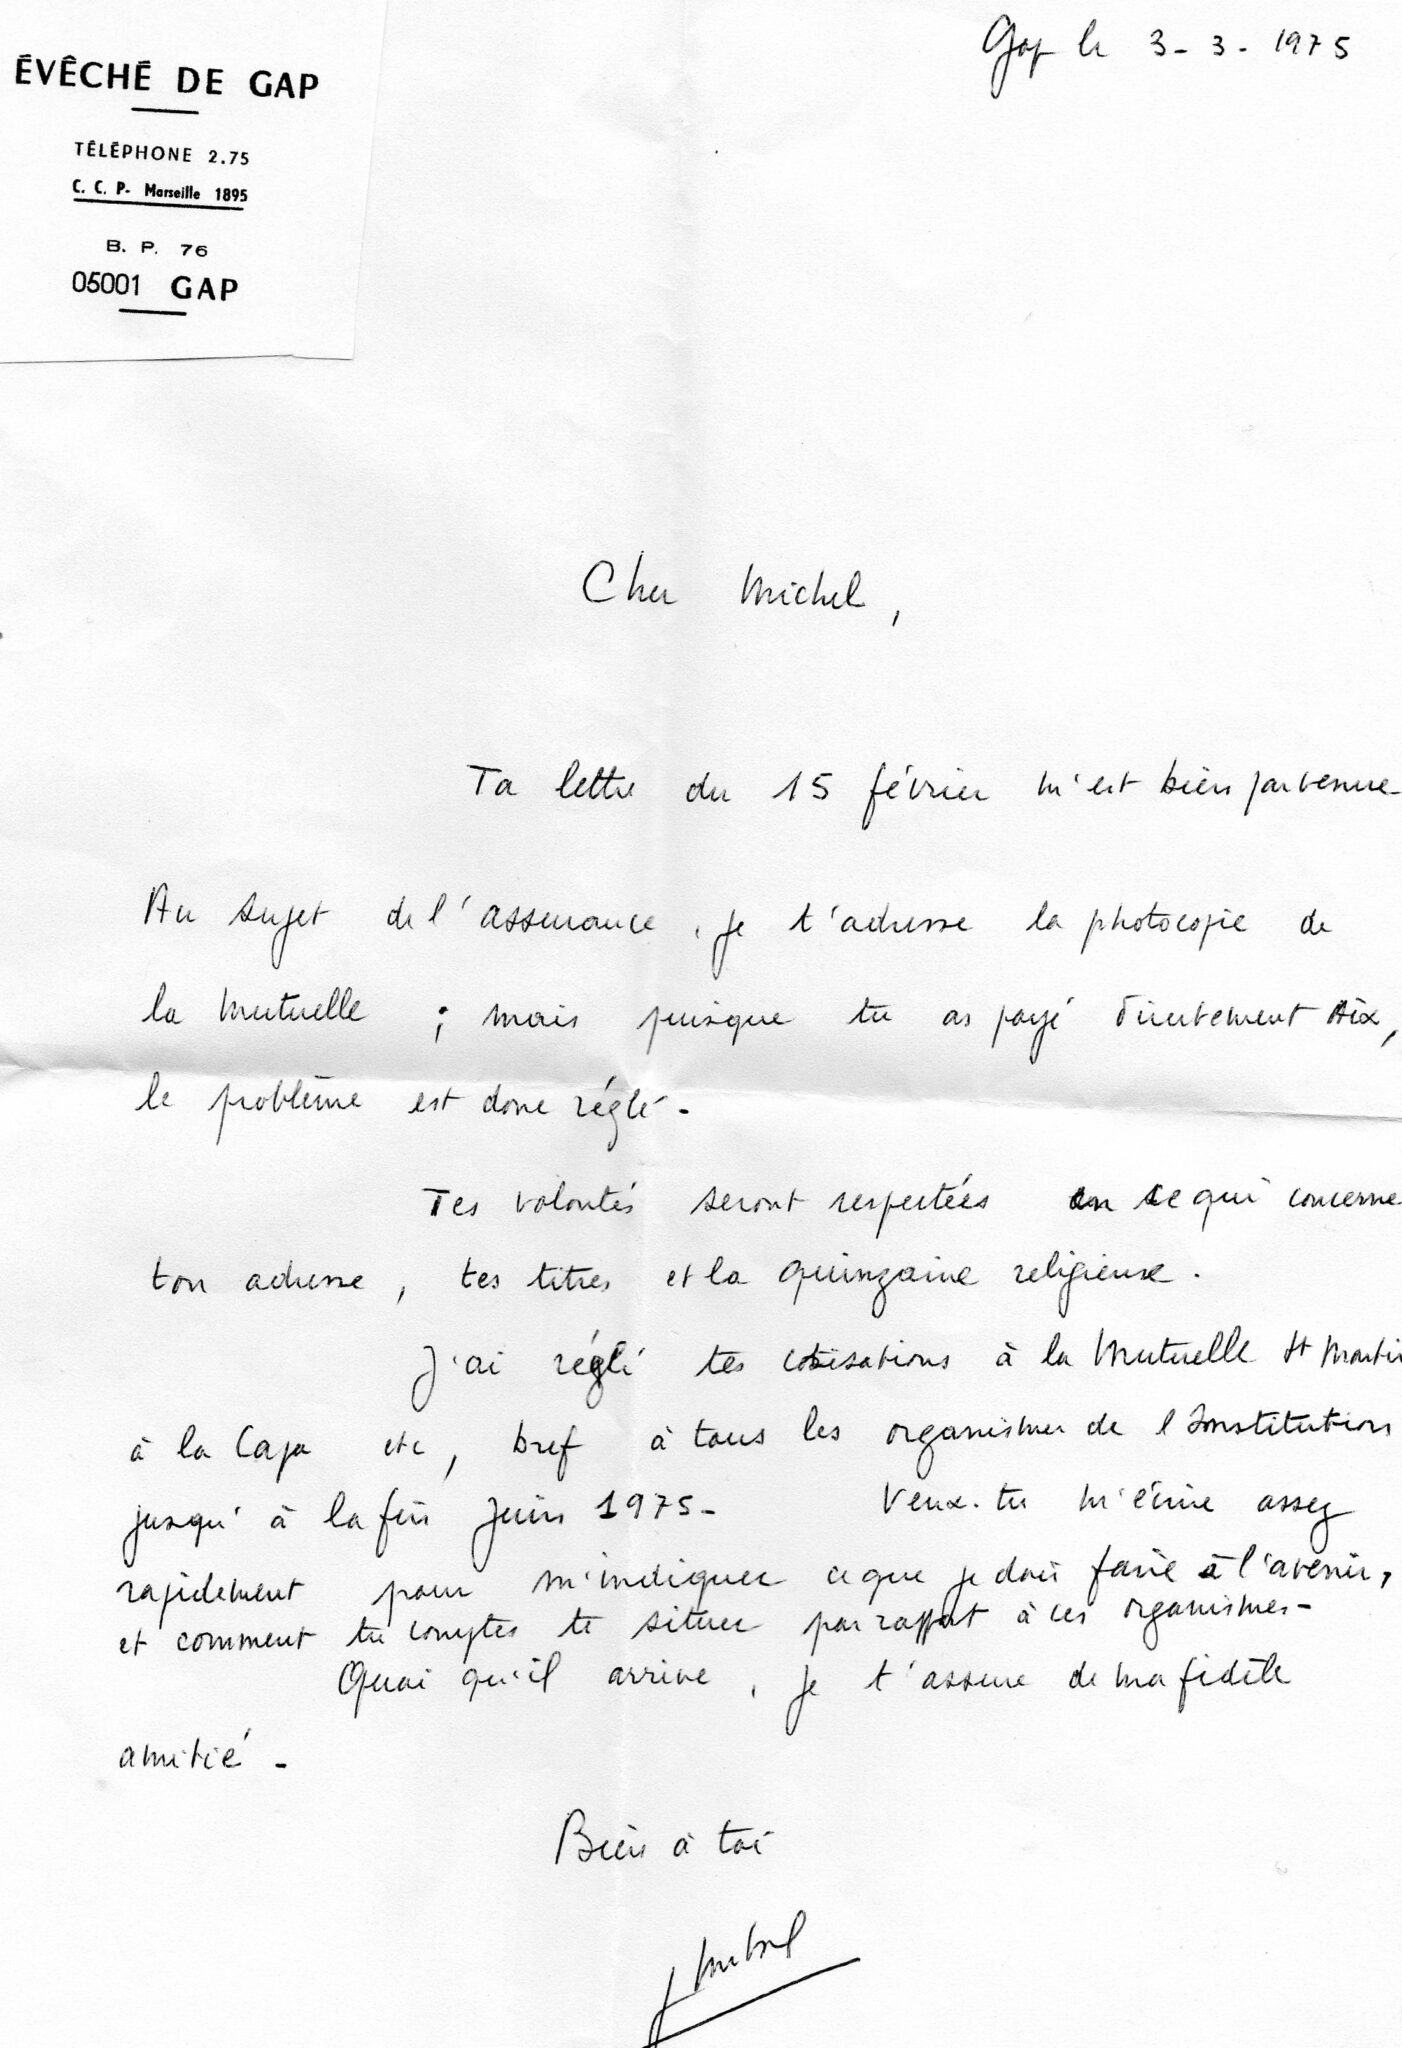 Gap le 3-3-1975
ÉVÊCHÉ DE GAP
TÉLÉPHONE 2.75
C. C. P- Marseille 1895
B. P. 76
05001 GAP
Cher Michel,
Ta lettre du 15 février m'est bien parvenue-
Au sujet de l'assurance, je t'adresse la photocopie de
la Mutuelle ; mais puisque tu as payé directement Aix,
le problème est donc réglé-
Tes volontés seront respectées en ce qui concerne
ton adresse, tes titres et la quinzaine religieuse.
J'ai réglé tes cotisations à la Mutuelle St Martin
à la Capa etc, bref à tous les organismes de l'Institution
jusqu'à la fin Juin 1975- Veux-tu m'écrire assez
rapidement pour m'indiquer ce que je dois faire à l'avenir,
et comment tu comptes te situer par rapport à ces organismes-
Quoi qu'il arrive, je t'assure de ma fidèle
amitié-
Bien à toi